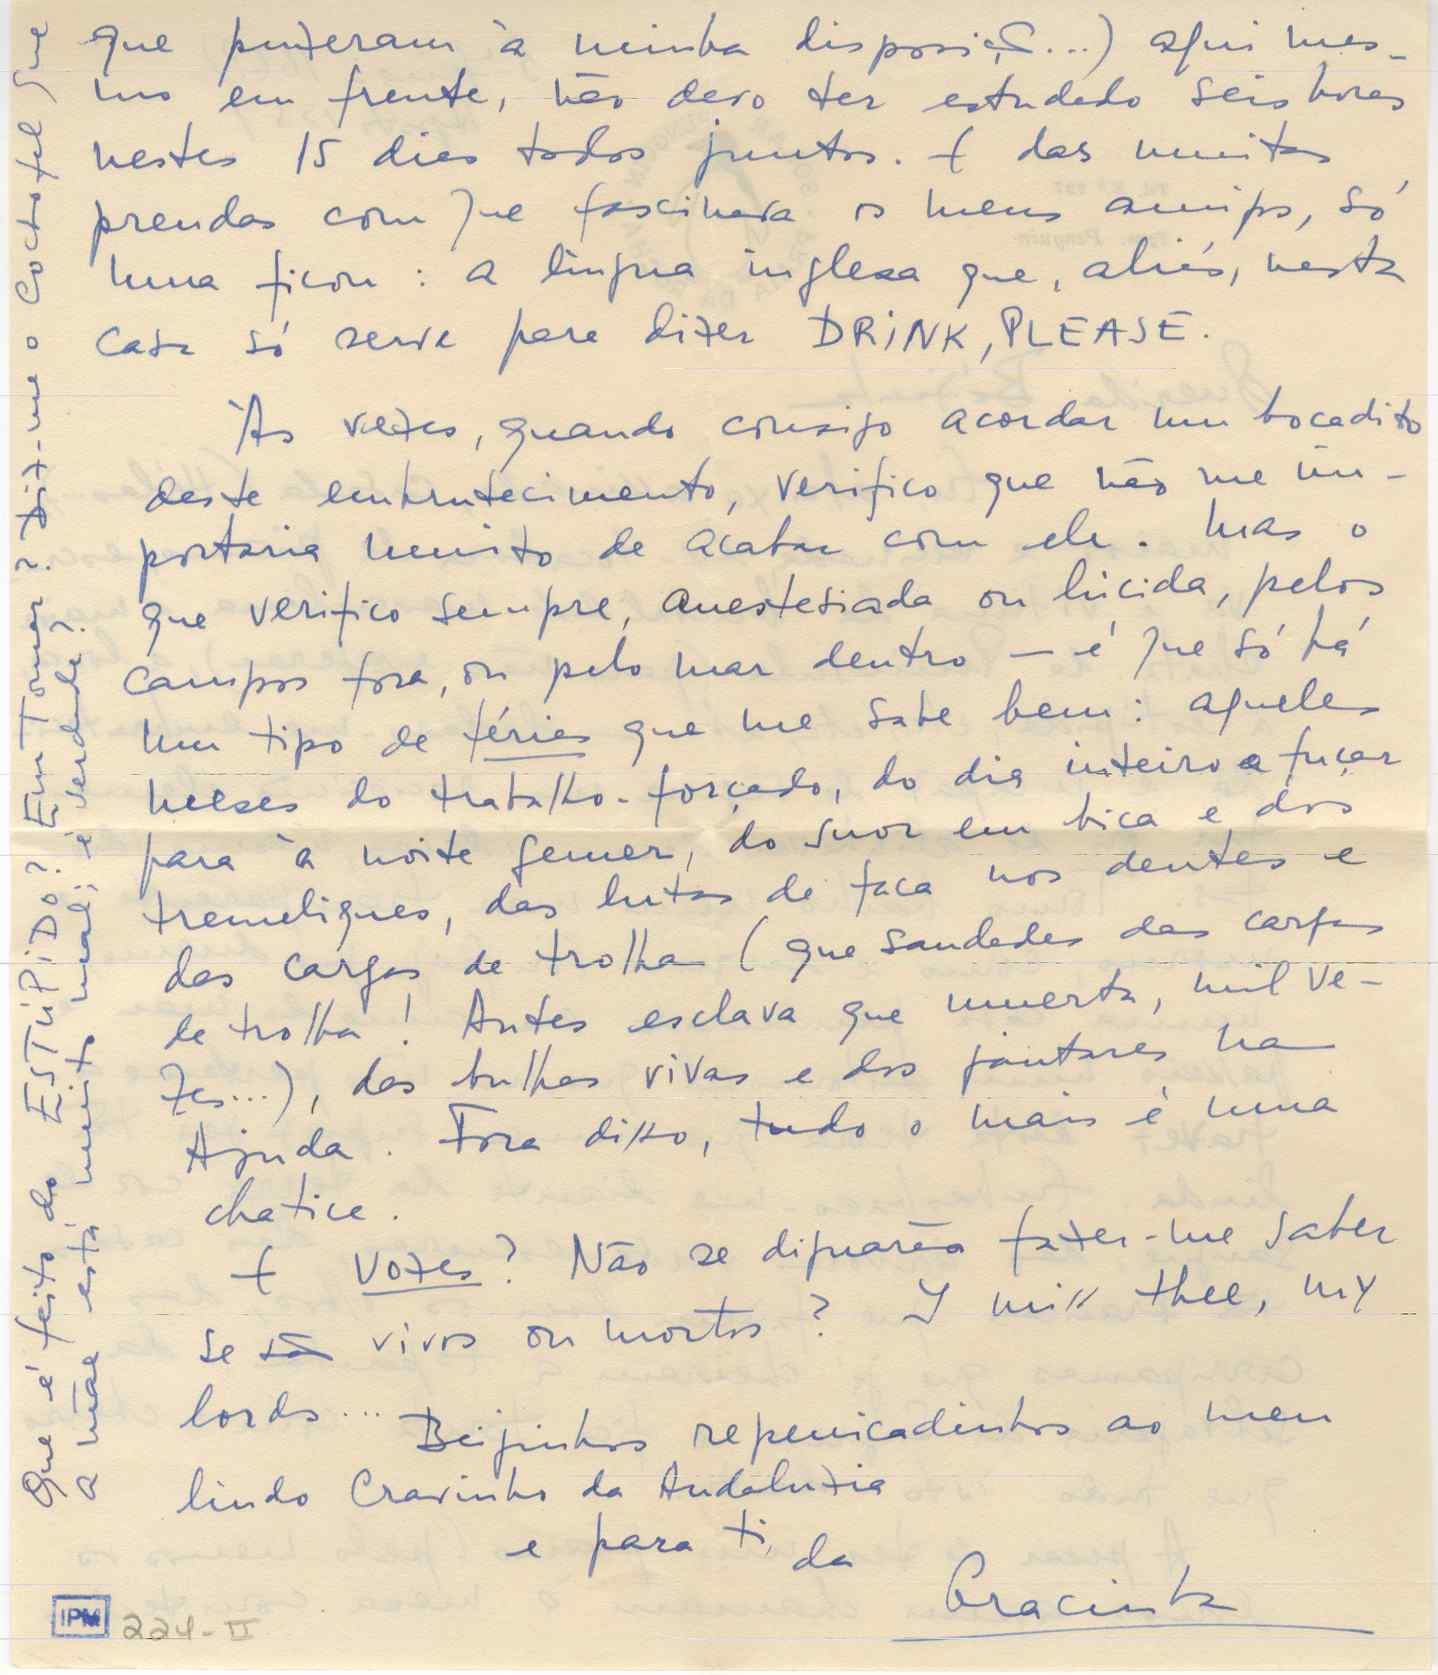 que puzeram à minha disposição...) aqui mes-
mo em frente, não devo ter estudado seis horas
nestes 15 dias todos juntos. E das muitas
prendas com que fascinava os meus amigos, só
uma ficou: a língua inglesa que, aliás, nesta
casa só serve para dizer DRINK, PLEASE.
Às vezes, quando consigo acordar um bocadito
deste embrutecimento, verifico que não me im-
portaria muito de acabar com ele. Mas o
que verifico sempre, anestesiada ou lúcida, pelos
campos fora, ou pelo mar dentro — é que só há
um tipo de férias que me sabe bem: aqueles
meses do trabalho-forçado, do dia inteiro a fuçar
para à noite gemer, do suor em bica e dos
tremeliques, das lutas de faca nos dentes e
das cargas de trolha (que saudades das cargas
de trolha! Antes esclava que muerta, mil ve-
zes...), das bulhas vivas e dos jantares na
Ajuda. Fora disso, tudo o mais é uma
chatice.
E vozes? Não se dignarão fazer-me saber
se são vivos ou mortos? I miss thee, my
lords... Beijinhos repenicadinhos ao meu
lindo Cravinho da Andaluzia
e para ti, da
Gracinta
Que é feito do ESTÚPIDO? Em Tomar? Diz-me o Coctofel que
a mãe está muito mal; é verdade?
IPM
224-II